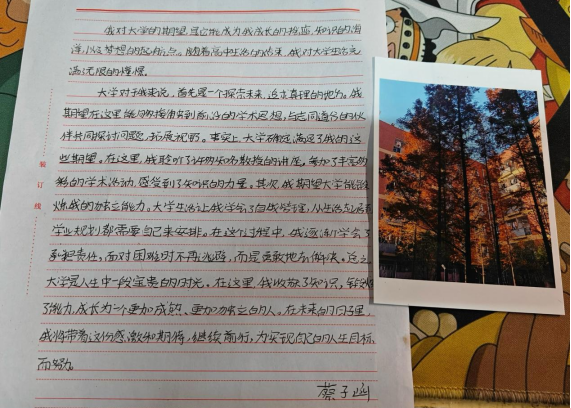 我对大学的期望,是它能成为我成长的摇篮,知识的海
洋,以及梦想的起航点。随着高中生活的结束,我对大学生活充
满无限的憧憬。
大学对于我来说,首先是一个探索未来,追求真理的地方。我
期望在这里能够接触到前沿的学术思想,与志同道合的伙
伴共同探讨问题,拓展视野。事实上,大学确实满足了我的这
些期望。在这里,我聆听了许多知名教授的讲座,参加了丰富多
彩的学术活动,感受到了知识的力量。其次,我期望大学能锻
炼我的独立能力。大学生活让我学会了自我管理,从生活起居到
学业规划都需要自己来安排。在这个过程中,我逐渐学会了
承担责任,面对困难时不再逃避,而是勇敢地去解决。总之,
大学是人生中一段宝贵的时光。在这里,我收获了知识,锻炼
了能力,成长为一个更加成熟、更加独立的人。在未来的日子里,
我将带着这份感激和期待,继续前行,为实现自己的人生目标
而努力。
蔡子涵
装订线